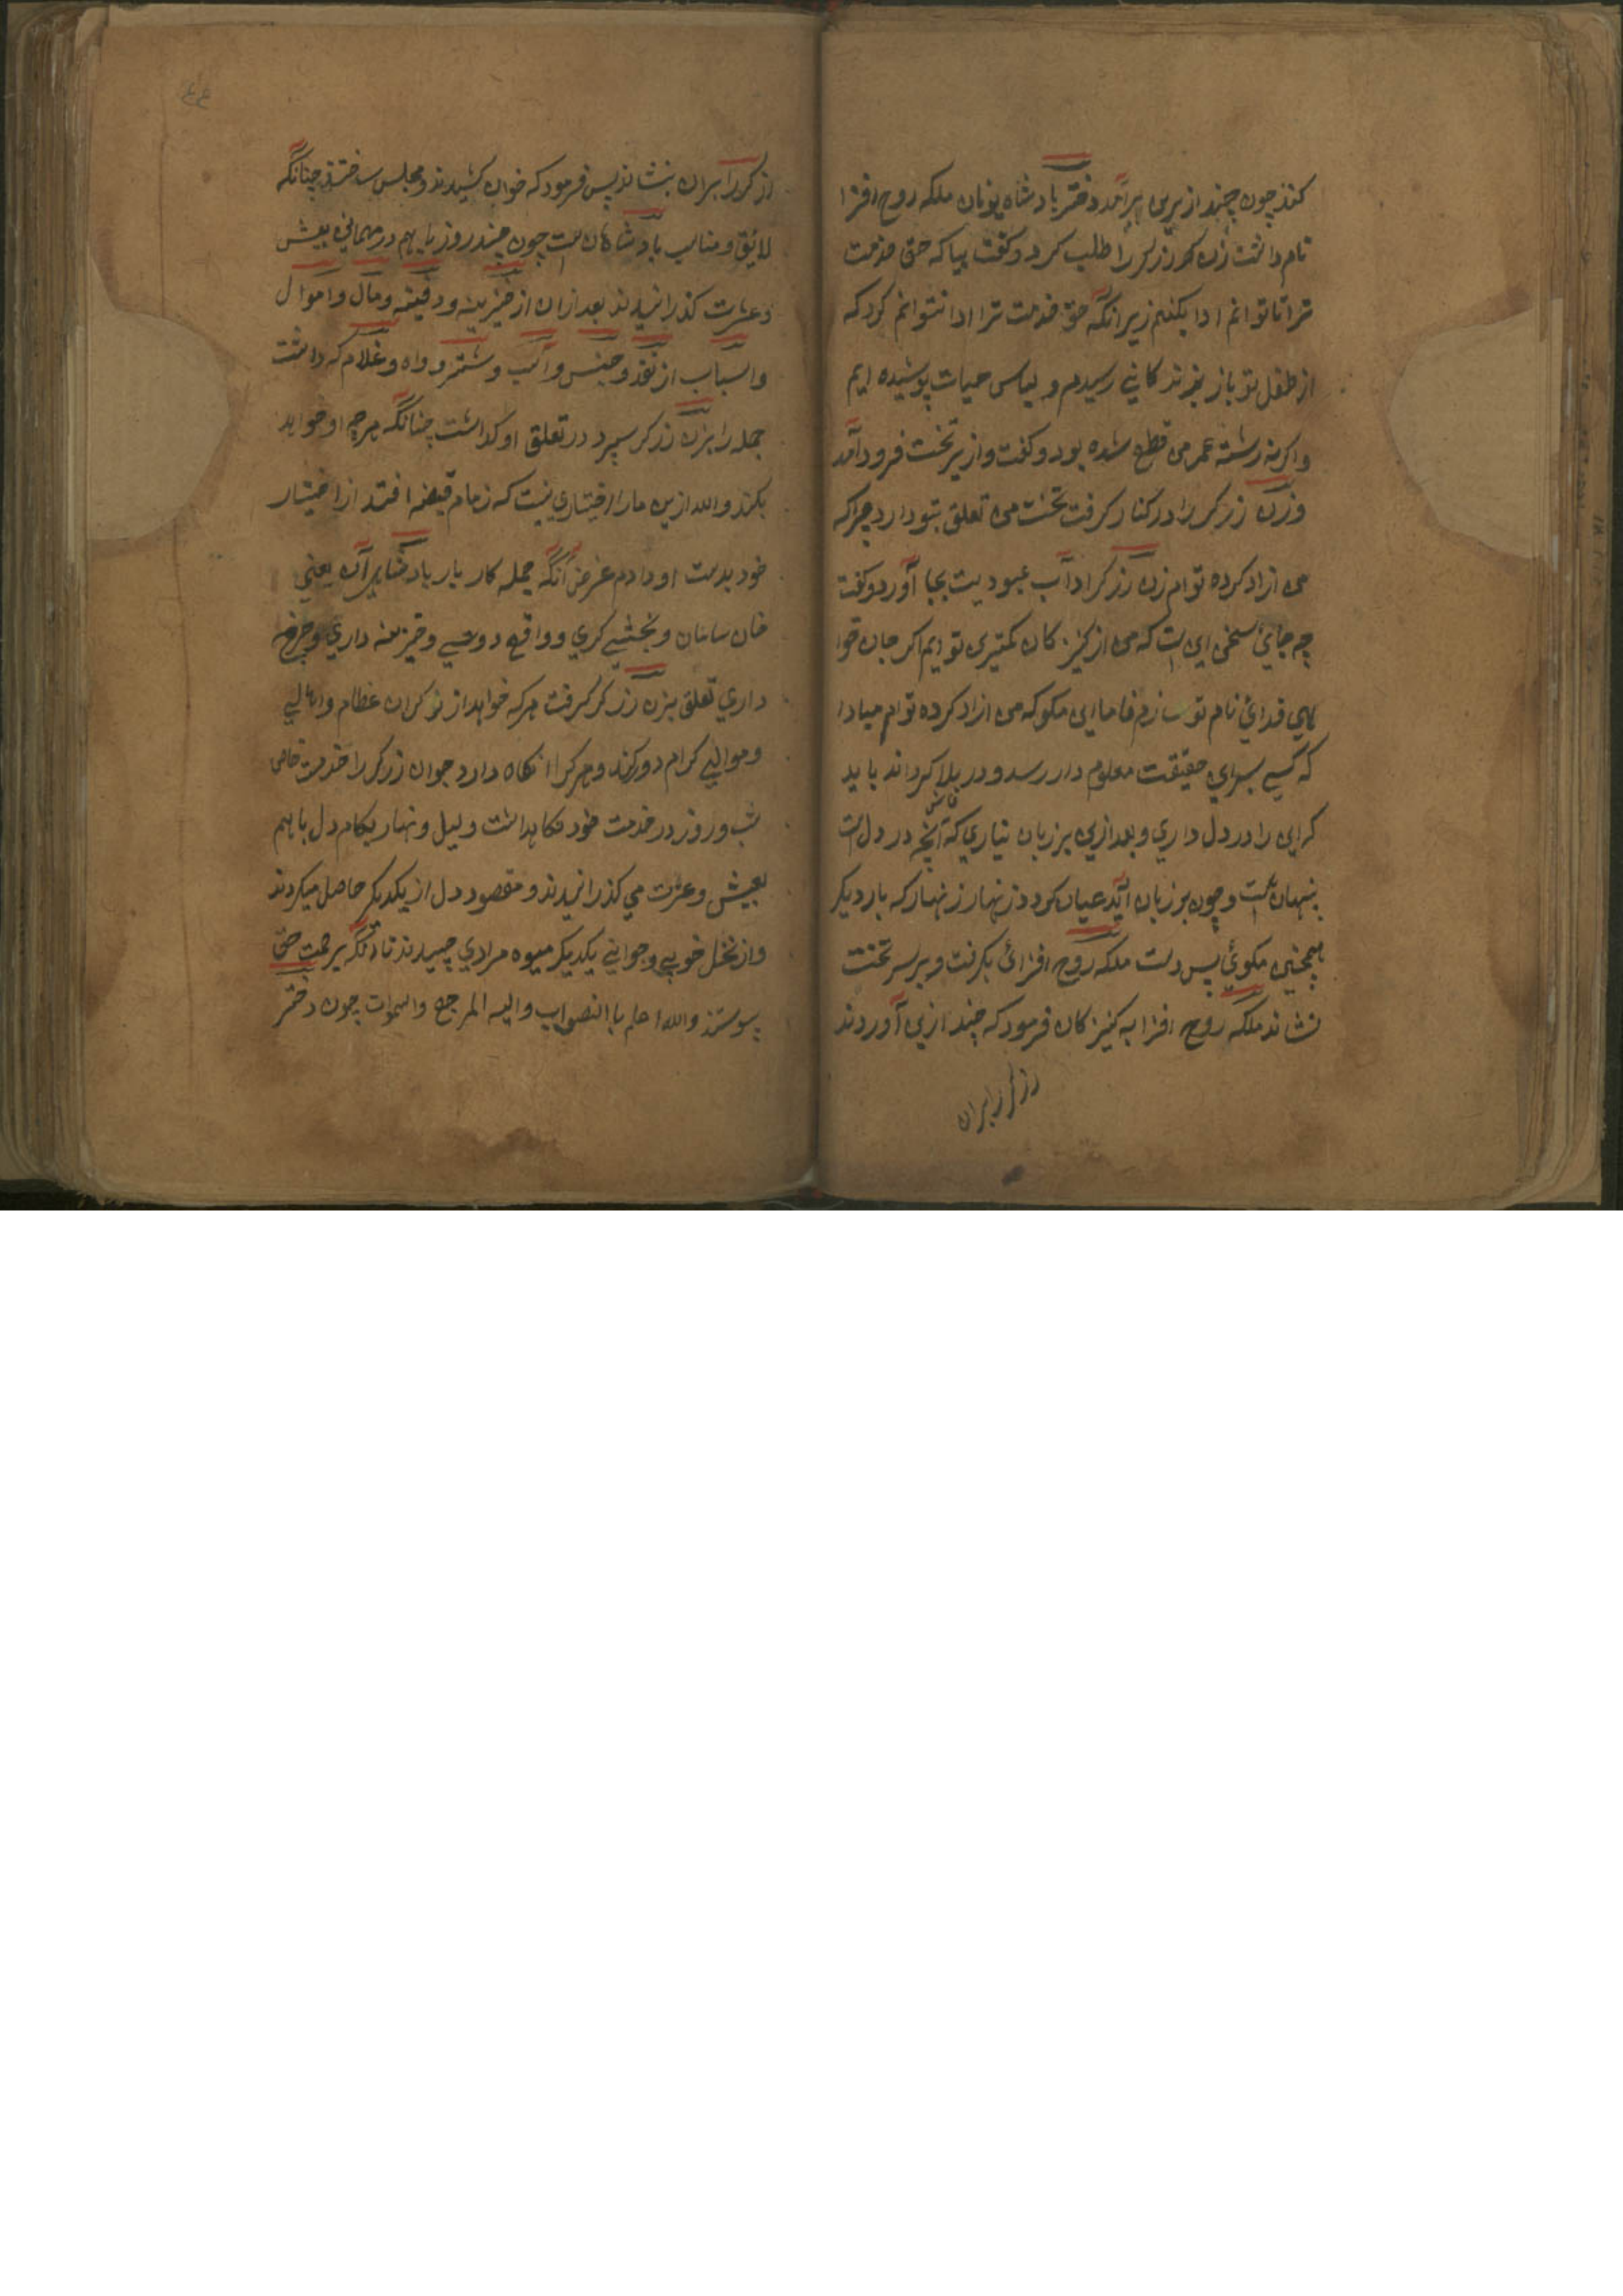 کنند چون چند ازین برآمد دختر بادشاه یونان ملکه روح افزا
نام داشت زن زرکر را طلب کرد و کفت بیا که حق خدمت
ترا تا توانم ادا بکنم زیرانکه حق خدمت ترا ادا نتوانم کرد که
از طفل تو باز بزندکانی رسیدم و لباس حیات پوشیده ایم
واکرنه رشته عمر من قطع شده بود و کفت و از تخت فرود آمد
و زن زرکر را در کنار کرفت تخت من تعلق بتو دارد چراکه
من ازاد کرده توام زن زرکر اداب عبودیت بجا آورد و کفت
چه جائ سخن این است که من از کنیزکان کمترین تو ایم اکر جان خود
فدائ نام تو سازم اما این مکو که من ازاد کرده توام مبادا
که کسی برین حقیقت معلوم دار رسد و در بلا کرداند باید
که این را در دل داری و بعد ازین بر زبان نیاری که آنچه در دل است
پنهان است و چون بر زبان آید عیان کردد زنهار زنهار که بار دیکر
همچنین مکوئ پس دست ملکه روح افزائ بکرفت و بر سر تخت
نشاند ملکه روح افزا به کنیزکان فرمود که چند ازین آوردند
زرکر را بران
زرکر را بران بنشاند پس فرمود که خوان کشیدند و مجلس ساختند چنانکه
لائق و مناسب بادشاهان است چون چند روز باهم در مهمانی بعیش
و عشرت کذرانیدند بعد ازان از خزینه و دفینه و مال و اموال
و اسباب از نقد و جنس و اسب و شتر و داه و غلام که داشت
جمله را بزن زرکر سپرد در تعلق او کذاشت چنانکه هرچه او خواهد
بکند والله ازین ما را اختیاری نیست که زمام قبضه اقتدار اختیار
خود بدست او دادم غرض آنکه جمله کار بار بادشاهی آن یعنی
خان سامان و بخشی کری و واقع نویسی و خزینه داری و
داری تعلق بزن زرکر کرفت هرکه خواهد از نوکران عظام و اهالی
و موالی کرام دور کند و هرکرا نکاه دارد جوان زرکر را خدمت خاص
شب و روز در خدمت خود نکاهداشت و لیل و نهار بکام دل باهم
بعیش و عشرت می کذرانیدند و مقصود دل از یکدیکر حاصل میکردند
و از نخل خوبی و جوانی یکدیکر میوه مرادی چیدند تا آنکه برحمت حق
پیوستند والله اعلم باالصواب و الیه المرجع و چون دختر